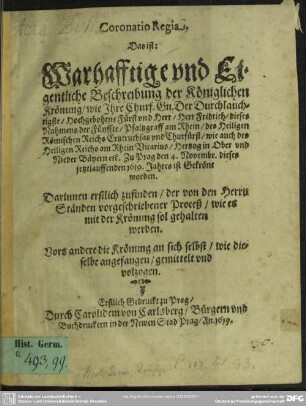 Coronatio Regia,
Das ist:
Warhafftige vnd Ei-
gentliche Beschreibung der Königlichen
Krönung/ wie Ihre Churf. Gn. Der Durchlauch-
tigste/ Hochgebohrne Fürst vnd Herr/ Herr Fridrich/ dieses
Nahmens der Fünffte/ Pfaltzgraff am Rhein/ des Heiligen
Römischen Reichs Ertztruchsas vnd Churfürst/ wie auch des
Heiligen Reichs am Rhein Vicarius/ Hertzog in Ober vnd
Nieder Bäyern etc. Zu Prag den 4. Novemb. dieses
jetztlauffenden 1619. Jahres ist Gekrönt
worden.
Darinnen erstlich zufinden/ der von den Herrn
Ständen vorgeschriebener Proceß/ wie es
mit der Krönung sol gehalten
werden.
Vors andere die Krönung an sich selbst/ wie die-
selbe angefangen/ gemittelt vnd
volzogen.
Erstlich Gedruckt zu Prag/
Durch Carolidem von Carlsberg/ Bürgern vnd
Buchdruckern in der Newen Stad Prag/ An. 1619.
Hist. Germ.
C.
493,99.